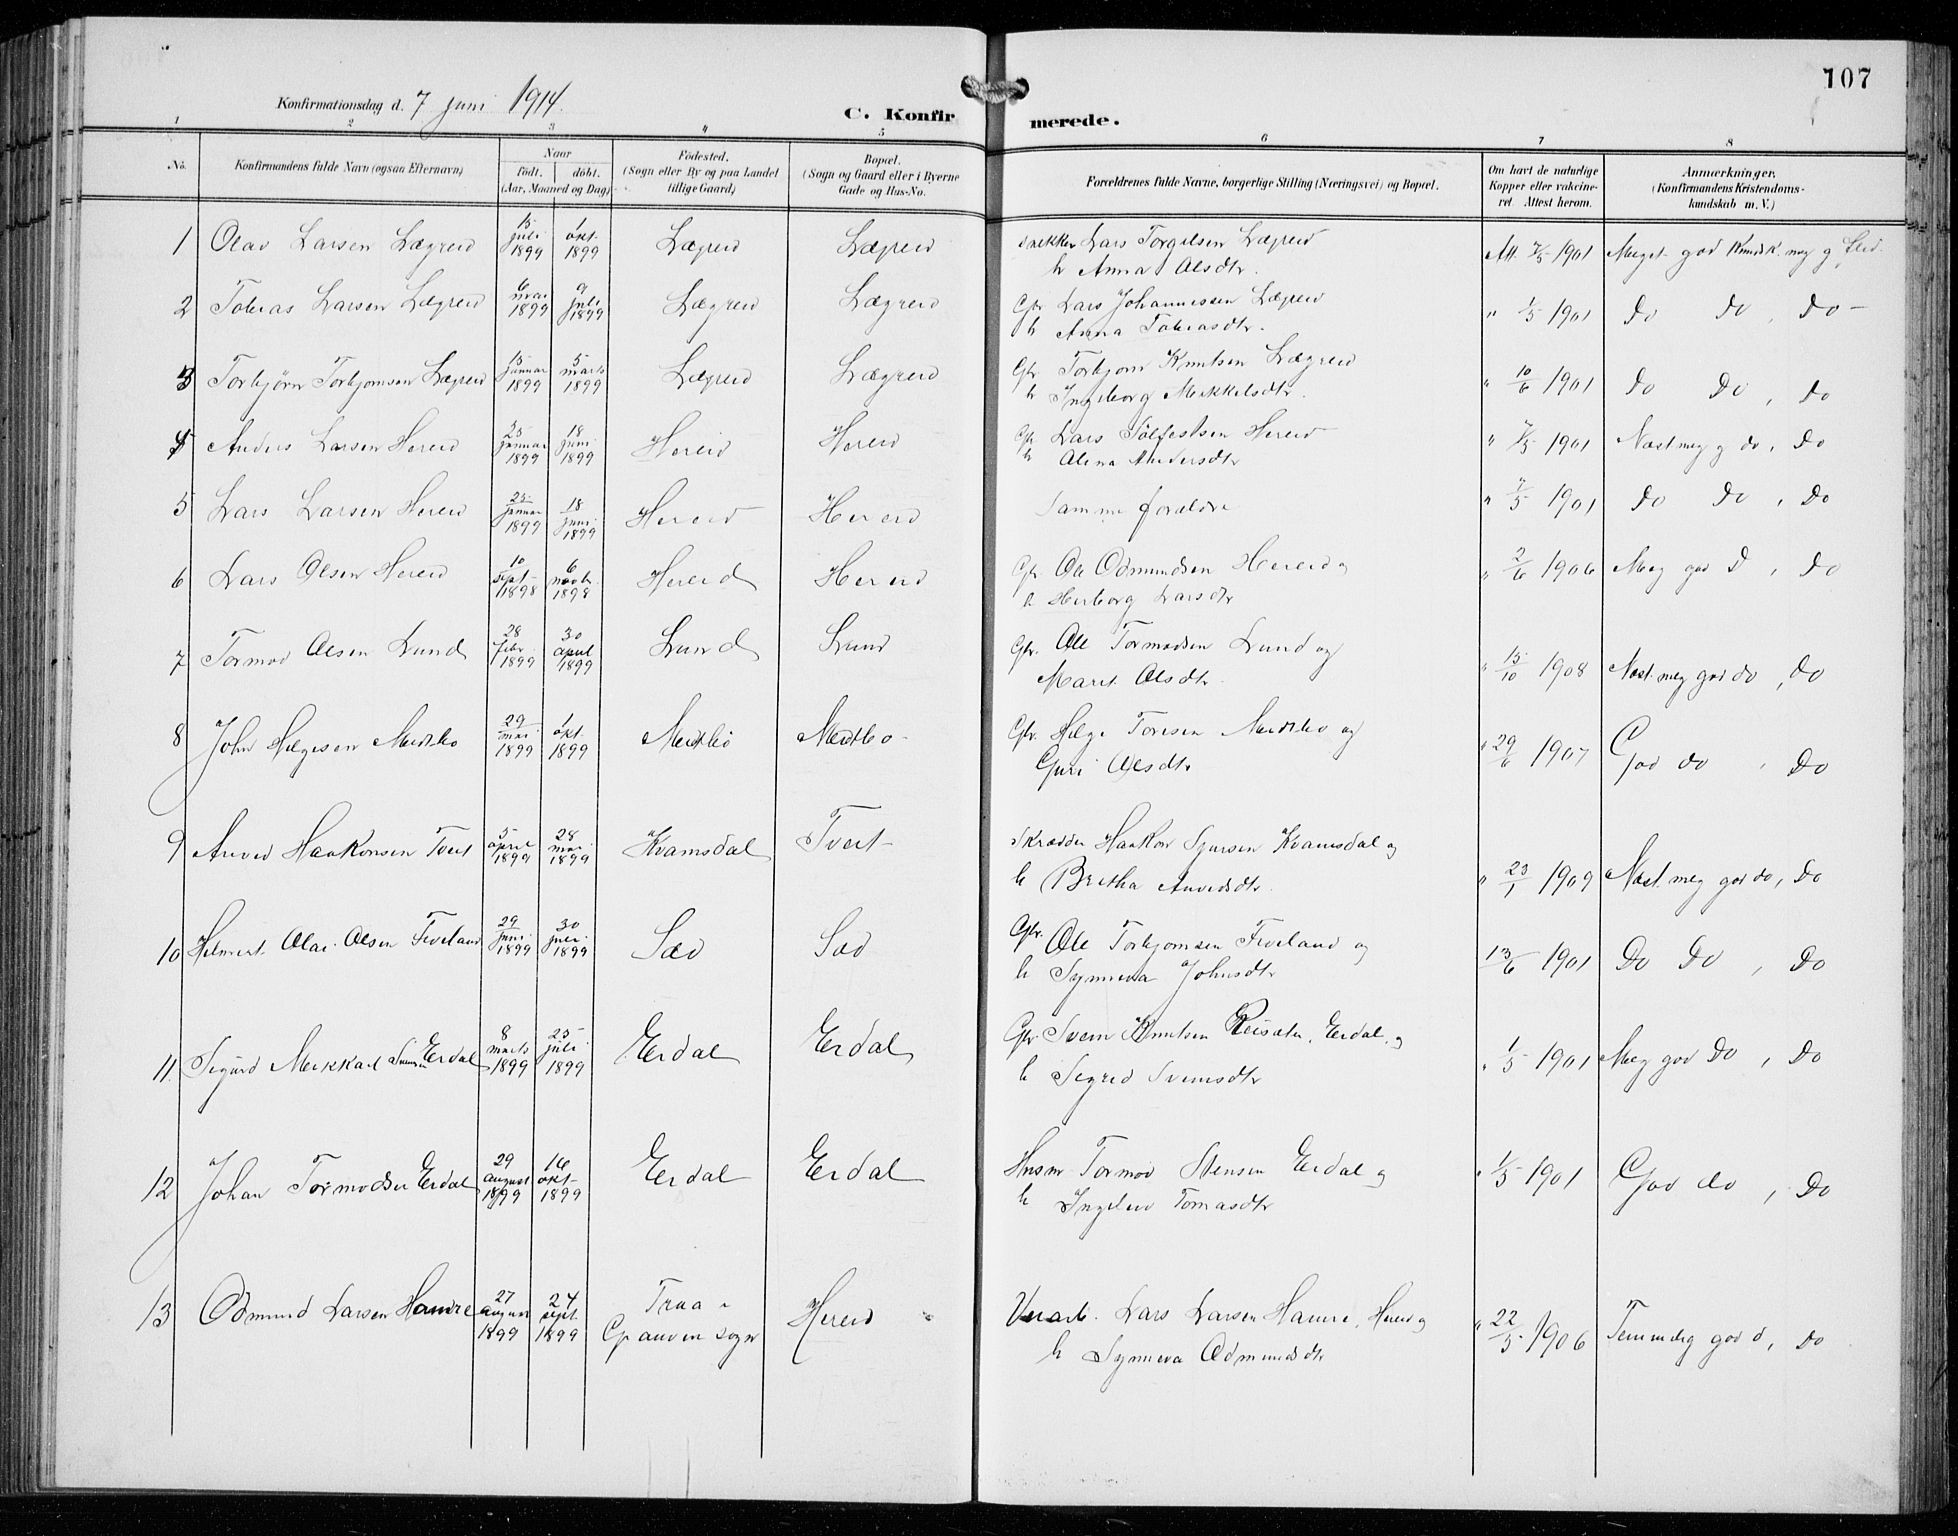 107
Konfirmationsdag d. 7 juni 1914.
C. Konfirmerede.
1 2 3 4 5 6 7 8
No. Konfirmandens fulde Navn (ogsaa Efternavn) Naar født. døbt. (Aar, Maaned og Dag) Fødested. (Sogn eller By og paa Landet tillige Gaard) Bopæl. (Sogn og Gaard eller i Byerne Gade og Hus-No. Forældrenes fulde Navne, borgerlige Stilling (Næringsvei) og Bopæl. Om havt de naturlige Kopper eller vakcineret. Attest herom. Anmærkninger. (Konfirmandens Kristendomskundskab m. V.)
1 Olav Larsen Lægreid 15 juli 1899 1 okt. 1899 Lægreid Lægreid Snekker Lars Torgilsen Lægreid
h Anna Olsdtr. Att. 7/5 1901 Meget god Kundsk. meg g flid.
2 Tobias Larsen Lægreid 6 mai 1899 9 juli 1899 Lægreid Lægreid Gbr Lars Johannessen Lægreid
h Anna Tobiasdtr. " 1/5 1901 do do, do
3 Torbjørn Torbjornsen Lægreid 15 januar 1899 5 marts 1899 Lægreid Lægreid Gbr. Torbjorn Knutsen Lægreid
h Ingeborg Mikkelsdtr. " 10/6 1901 do do, do
4 Anders Larsen Hereid 25 januar 1899 18 juni 1899 Hereid Hereid Gbr Lars Solfestsen Hereid
h Alina Andersdtr " 7/5 1901 Næst meg g do, do
5 Lars Larsen Hereid 25 januar 1899 18 juni 1899 Hereid Hereid Samme forældre " 7/5 1901 do do, do
6 Lars Olsen Hereid 10 sept 1898 6 novbr. 1898 Hereid Hereid Gbr. Ole Odmundsen Hereid og
h Herborg Larsdtr " 2/6 1906 Meg god d, do
7 Tormod Olsen Lund 28 febr. 1899 30 april 1899 Lund Lund Gbr. Ole Tormodsen Lund og
Marit Olsdtr. " 15/10 1908 Næst meg god do, do
8 John Helgesen Meidtbo 29 mai 1899 1 okt. 1899 Meidtbø Meidtbo Gbr. Helge Toresen Meidtbo og
Guri Olsdtr " 29/6 1907 God do, do
9 Anved Haakonsen Tveit 5 april 1899 28 mai 1899 Kvamsdal Tveit Skrædder Haakon Sjursen Kvamsdal og
h Britha Anvedsdtr. " 23/1 1909 Næst meg god do, do
10 Olai Olsen Fiveland 29 juni 1899 30 juli 1899 Sæd Sæd Gbr. Ole Torbjornsen Fiveland og
h Synneva Johnsdtr 13/6 1901 Do Do, Do
11. Sigurd Mikkael Svensen Erdal 8 marts 1899 25 juli 1899 Erdal Erdal Gbr Svein Knutsen Reisæter, Erdal, og
h Sigrid Svensdtr " 1/5 1901 Meg god do, do
12 Johan Tormodsen Erdal 29 august 1899 16 okt 1899 Erdal Erdal Husm. Tormod Stensen Erdal og
h Ingeleiv Tomasdtr " 1/5 1901 God do, Do
13 Odmund Larsen Hamre 27 august 1899 24 sept 1899 Traa i
Graven sogn Hereid Veiarb. Lars Larsen Hamre, Hereid og
h Synneva Odmundsdtr " 22/5 1906 Temmelig god d, do